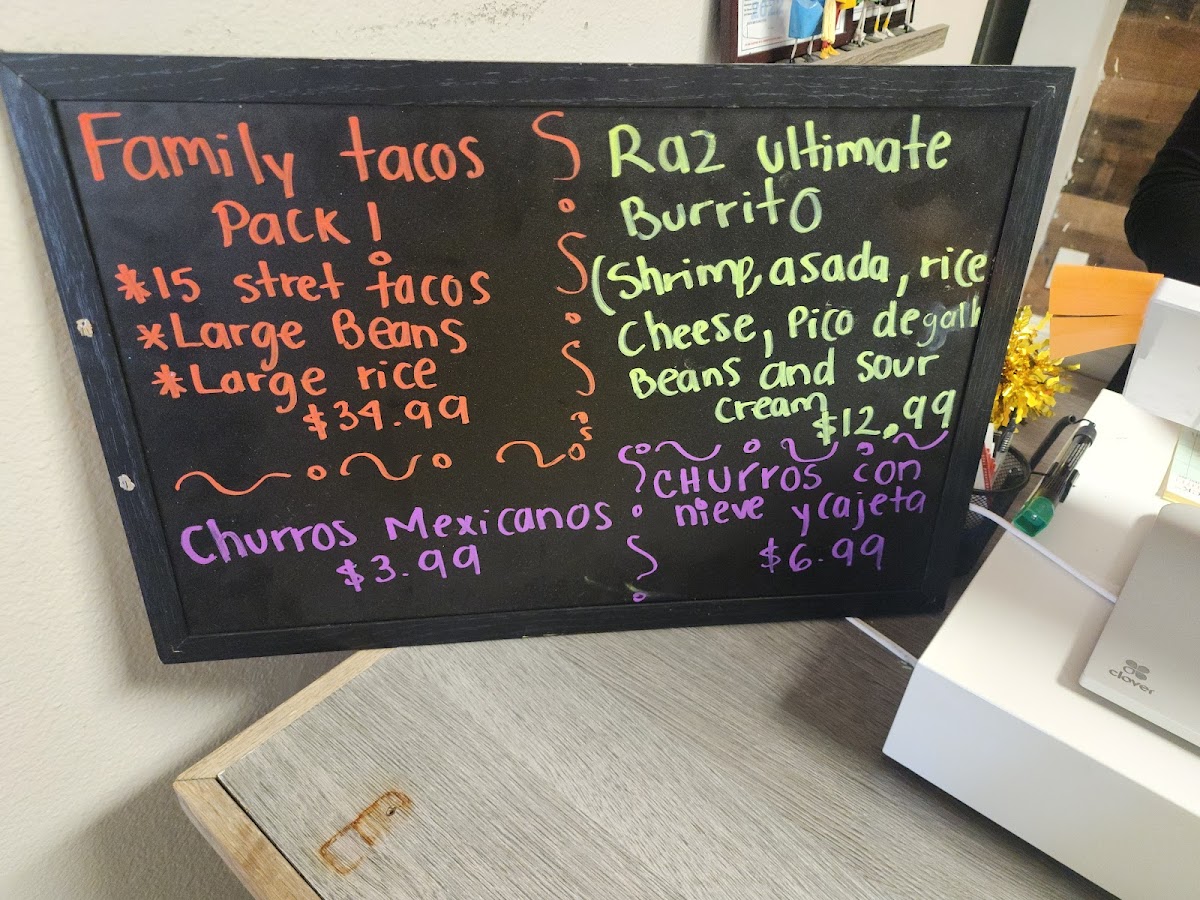 Family tacos
Pack!
*15 stret tacos
*Large Beans
*Large rice
$34.99
Raz ultimate
Burrito
(Shrimp, asada, rice
cheese, Pico de gallo
Beans and sour
cream
$12.99
Churros Mexicanos
$3.99
CHurros con
nieve y cajeta
$6.99
clover